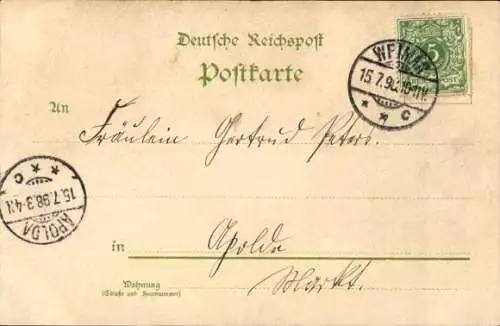 Deutsche Reichspost
Postkarte
WEIMAR
5
15.7.98.
C
An
Fräulein Gertrud Peters.
C
15.7.98.3-4N
APOLDA
in Apolda
Markt.
Wohnung
(Straße und Hausnummer)